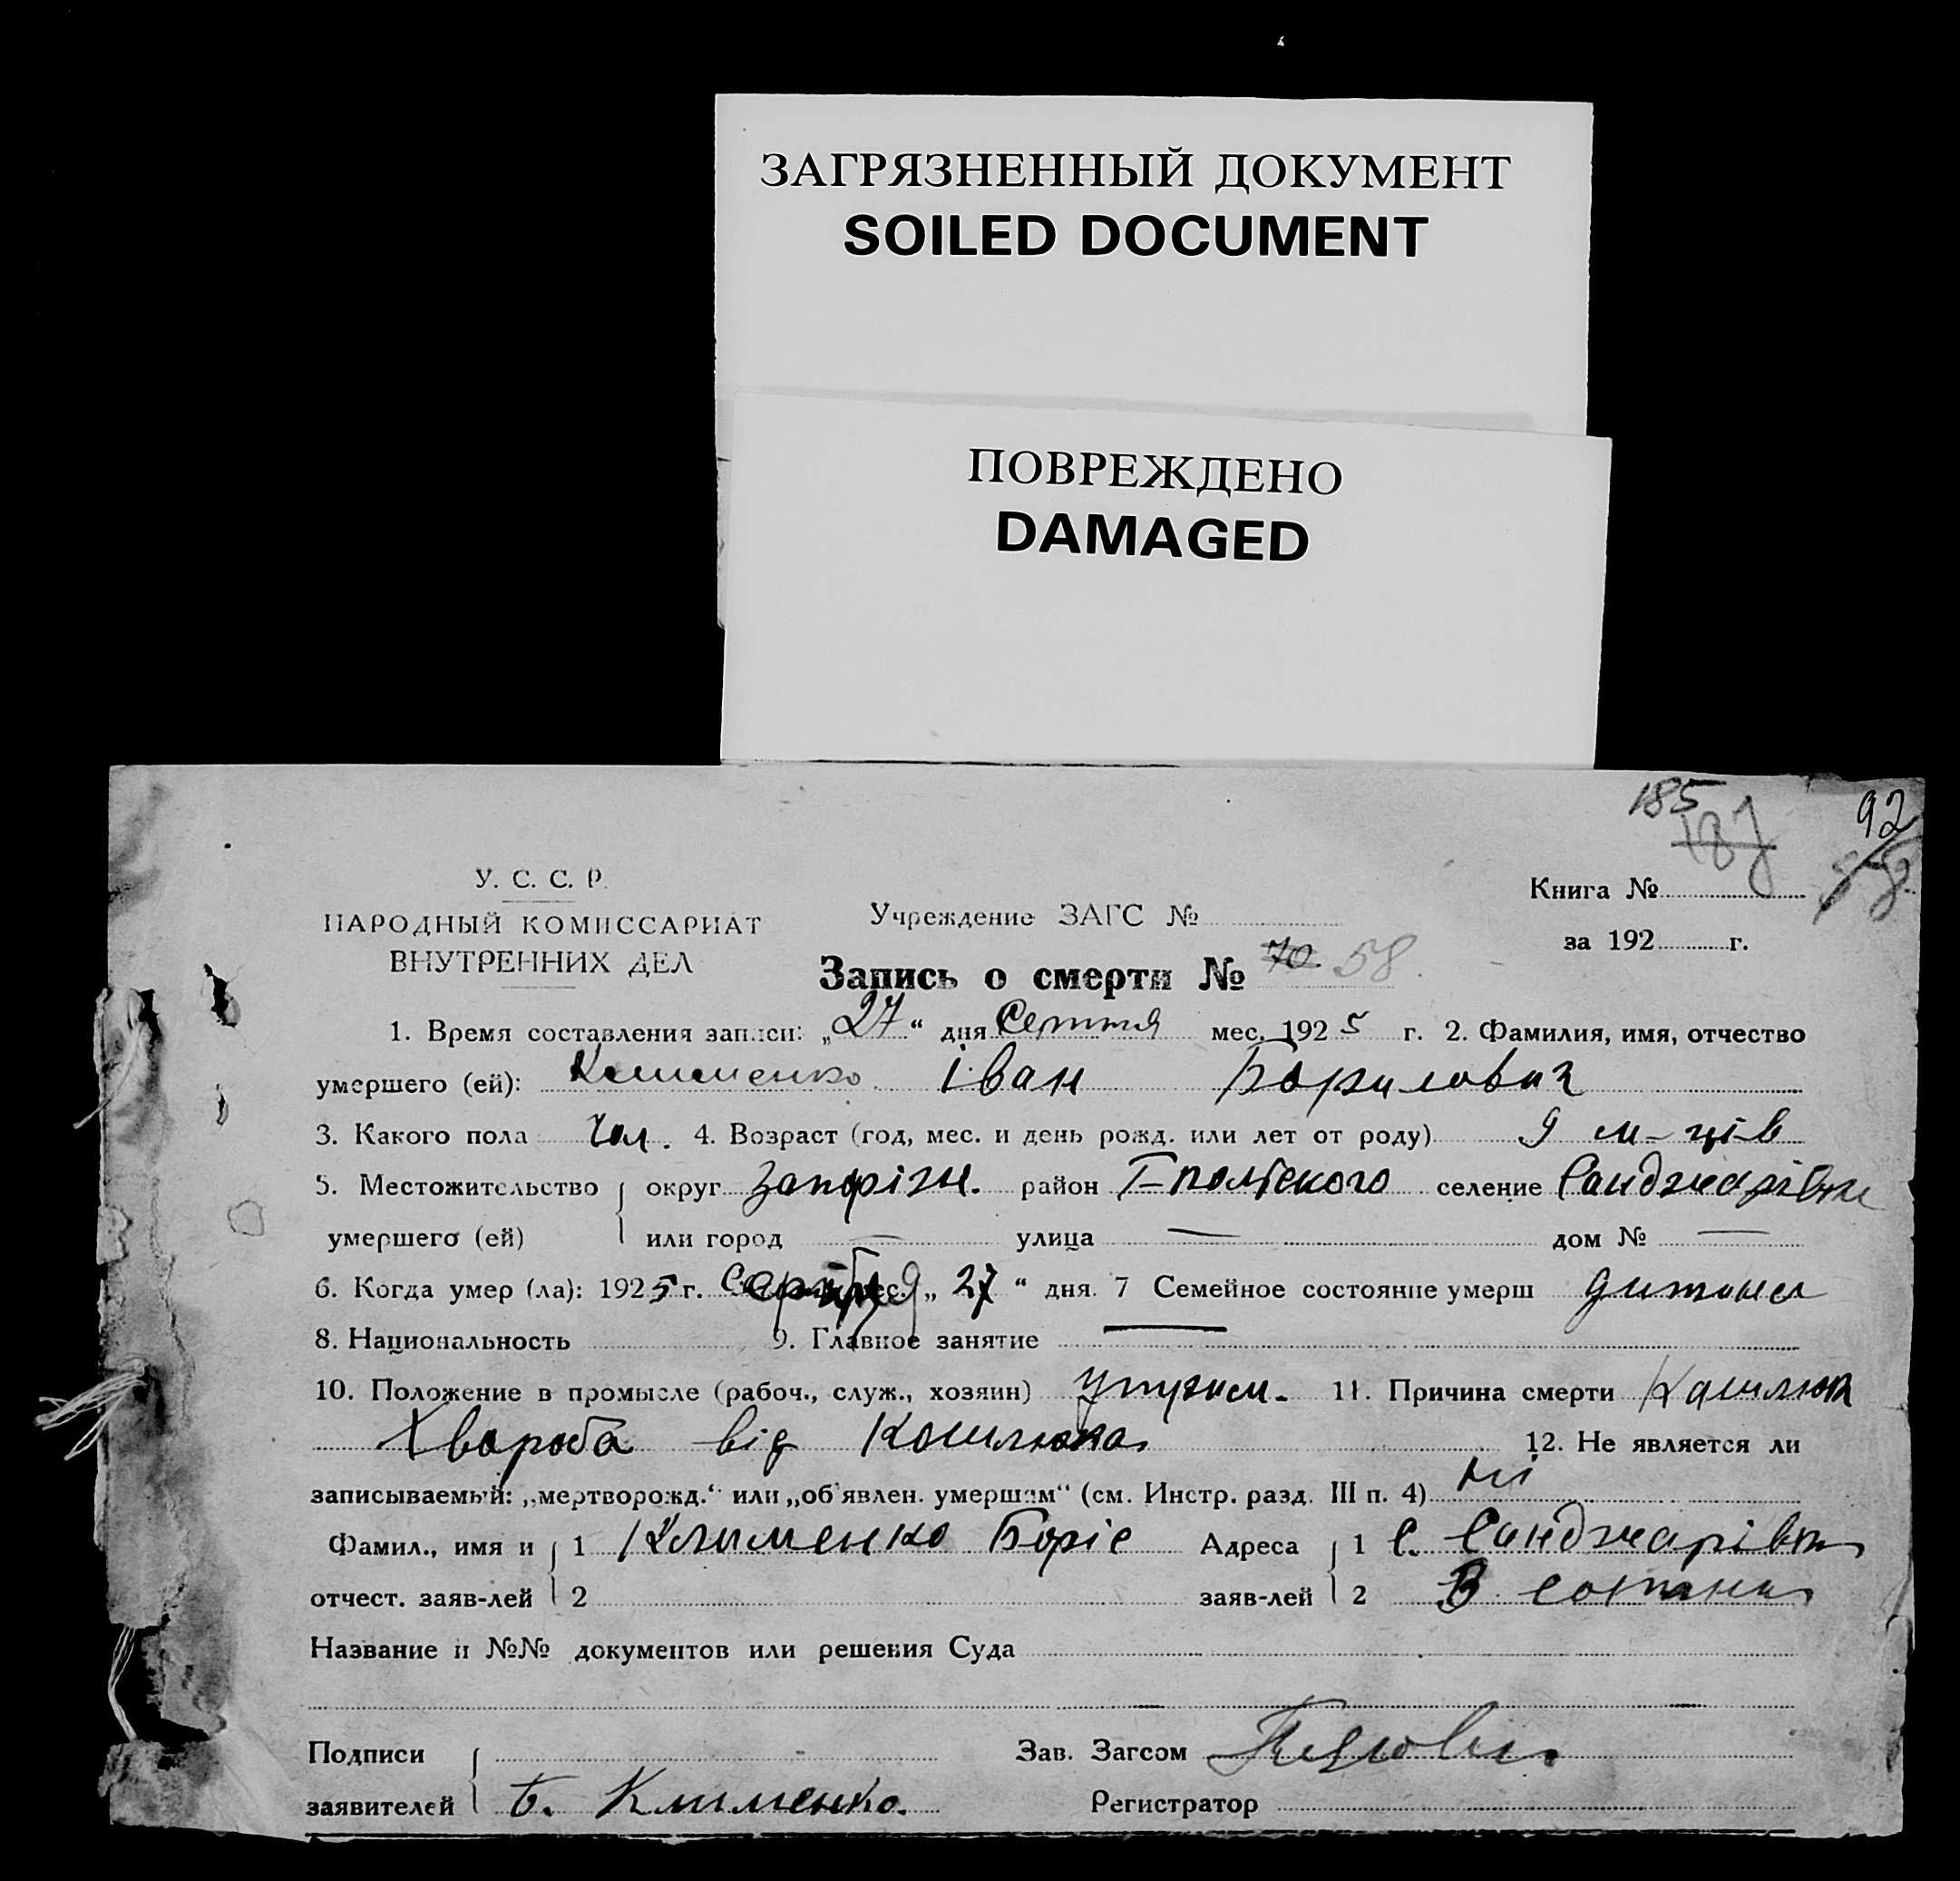 ЗАГРЯЗНЕННЫЙ ДОКУМЕНТ
SOILED DOCUMENT
ПОВРЕЖДЕНО
DAMAGED
185
187
92
У. С. С. Р.
НАРОДНЫЙ КОМИССАРИАТ
ВНУТРЕННИХ ДЕЛ
Учреждение ЗАГС №
Книга №
за 192 г.
Запись о смерти № 70 58
1. Время составления записи: „27“ дня Серпня мес. 1925 г. 2. Фамилия, имя, отчество
умершего (ей): Клименко Іван Борисович
3. Какого пола Чол. 4. Возраст (год, мес. и день рожд. или лет от роду) 9 м-ців
5. Местожительство округ Запоріж. район Г-польського селение Санджарівка
умершего (ей) или город — улица — дом № —
6. Когда умер (ла): 1925 г. мес. „27“ дня. 7 Семейное состояние умерш дитина
8. Национальность 9. Главное занятие —
10. Положение в промысле (рабоч., служ., хозяин) утрим. 11. Причина смерти Кашлюк
Хвороба від Кошлюка 12. Не является ли
записываемый: „мертворожд.“ или „об'явлен. умершим“ (см. Инстр. разд. III п. 4) ні
Фамил., имя и 1 Клименко Боріс Адреса 1 С. Санджарівка
отчест. заяв-лей 2 заяв-лей 2 В сотня
Название и №№ документов или решения Суда
Подписи Зав. Загсом
заявителей Б. Клименко. Регистратор